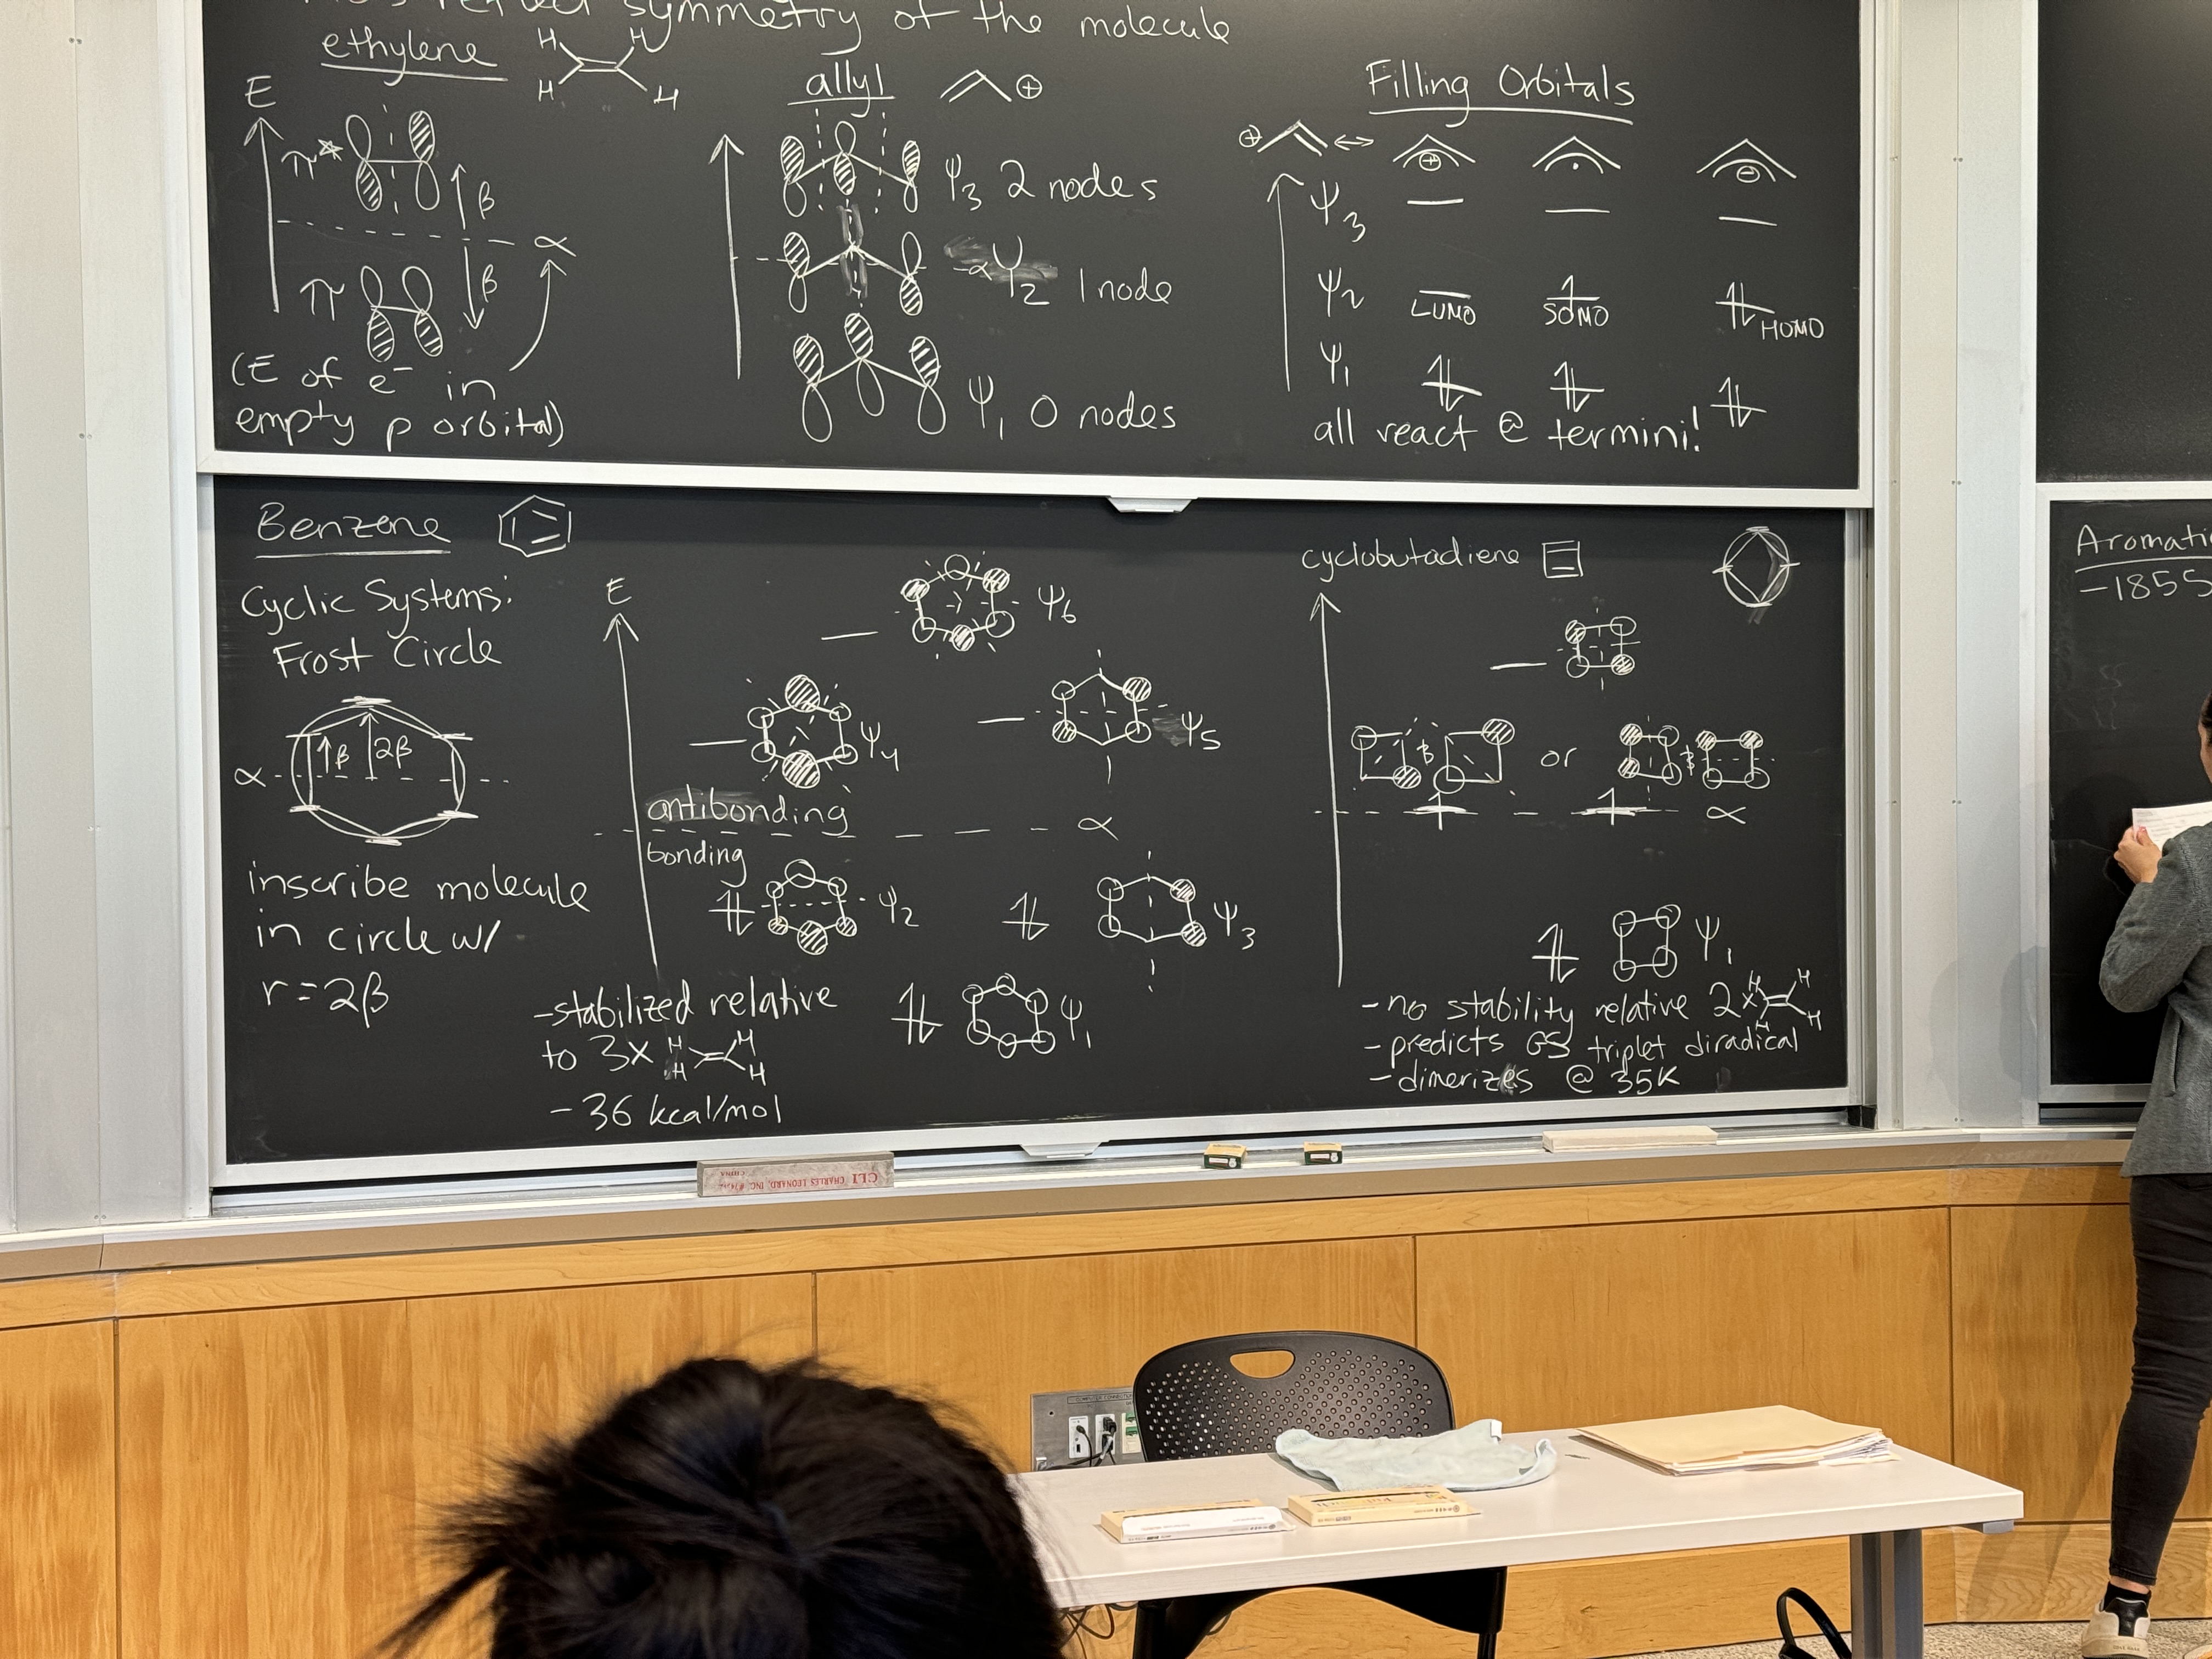 symmetry of the molecule
ethylene
H H
H H
E
π*
β
α
β
π
(E of e⁻ in
empty p orbital)
allyl ⊕
ψ3 2 nodes
ψ2 1 node
ψ1 0 nodes
Filling Orbitals
⊕ ↔ ⊕ · ⊖
ψ3
ψ2 LUMO SOMO HOMO
ψ1
all react @ termini!
Benzene
Cyclic Systems:
Frost Circle
α β 2β
inscribe molecule
in circle w/
r=2β
E
ψ6
ψ4 ψ5
antibonding
α
bonding
ψ2 ψ3
ψ1
-stabilized relative
to 3x H H H H
-36 kcal/mol
cyclobutadiene
& or &
α
ψ1
-no stability relative 2x H H H H
-predicts GS triplet diradical
-dimerizes @ 35K
Aromati
-1855
CLI CHARLES LEONARD, INC.
CHINA